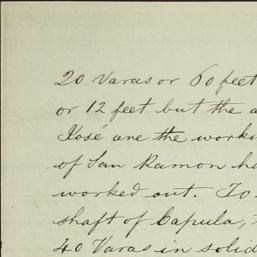 20 Varas or 60 feet
or 12 feet but the
José are the
of San Ramon
worked out. To
shaft of Capula,
40 Varas in solid